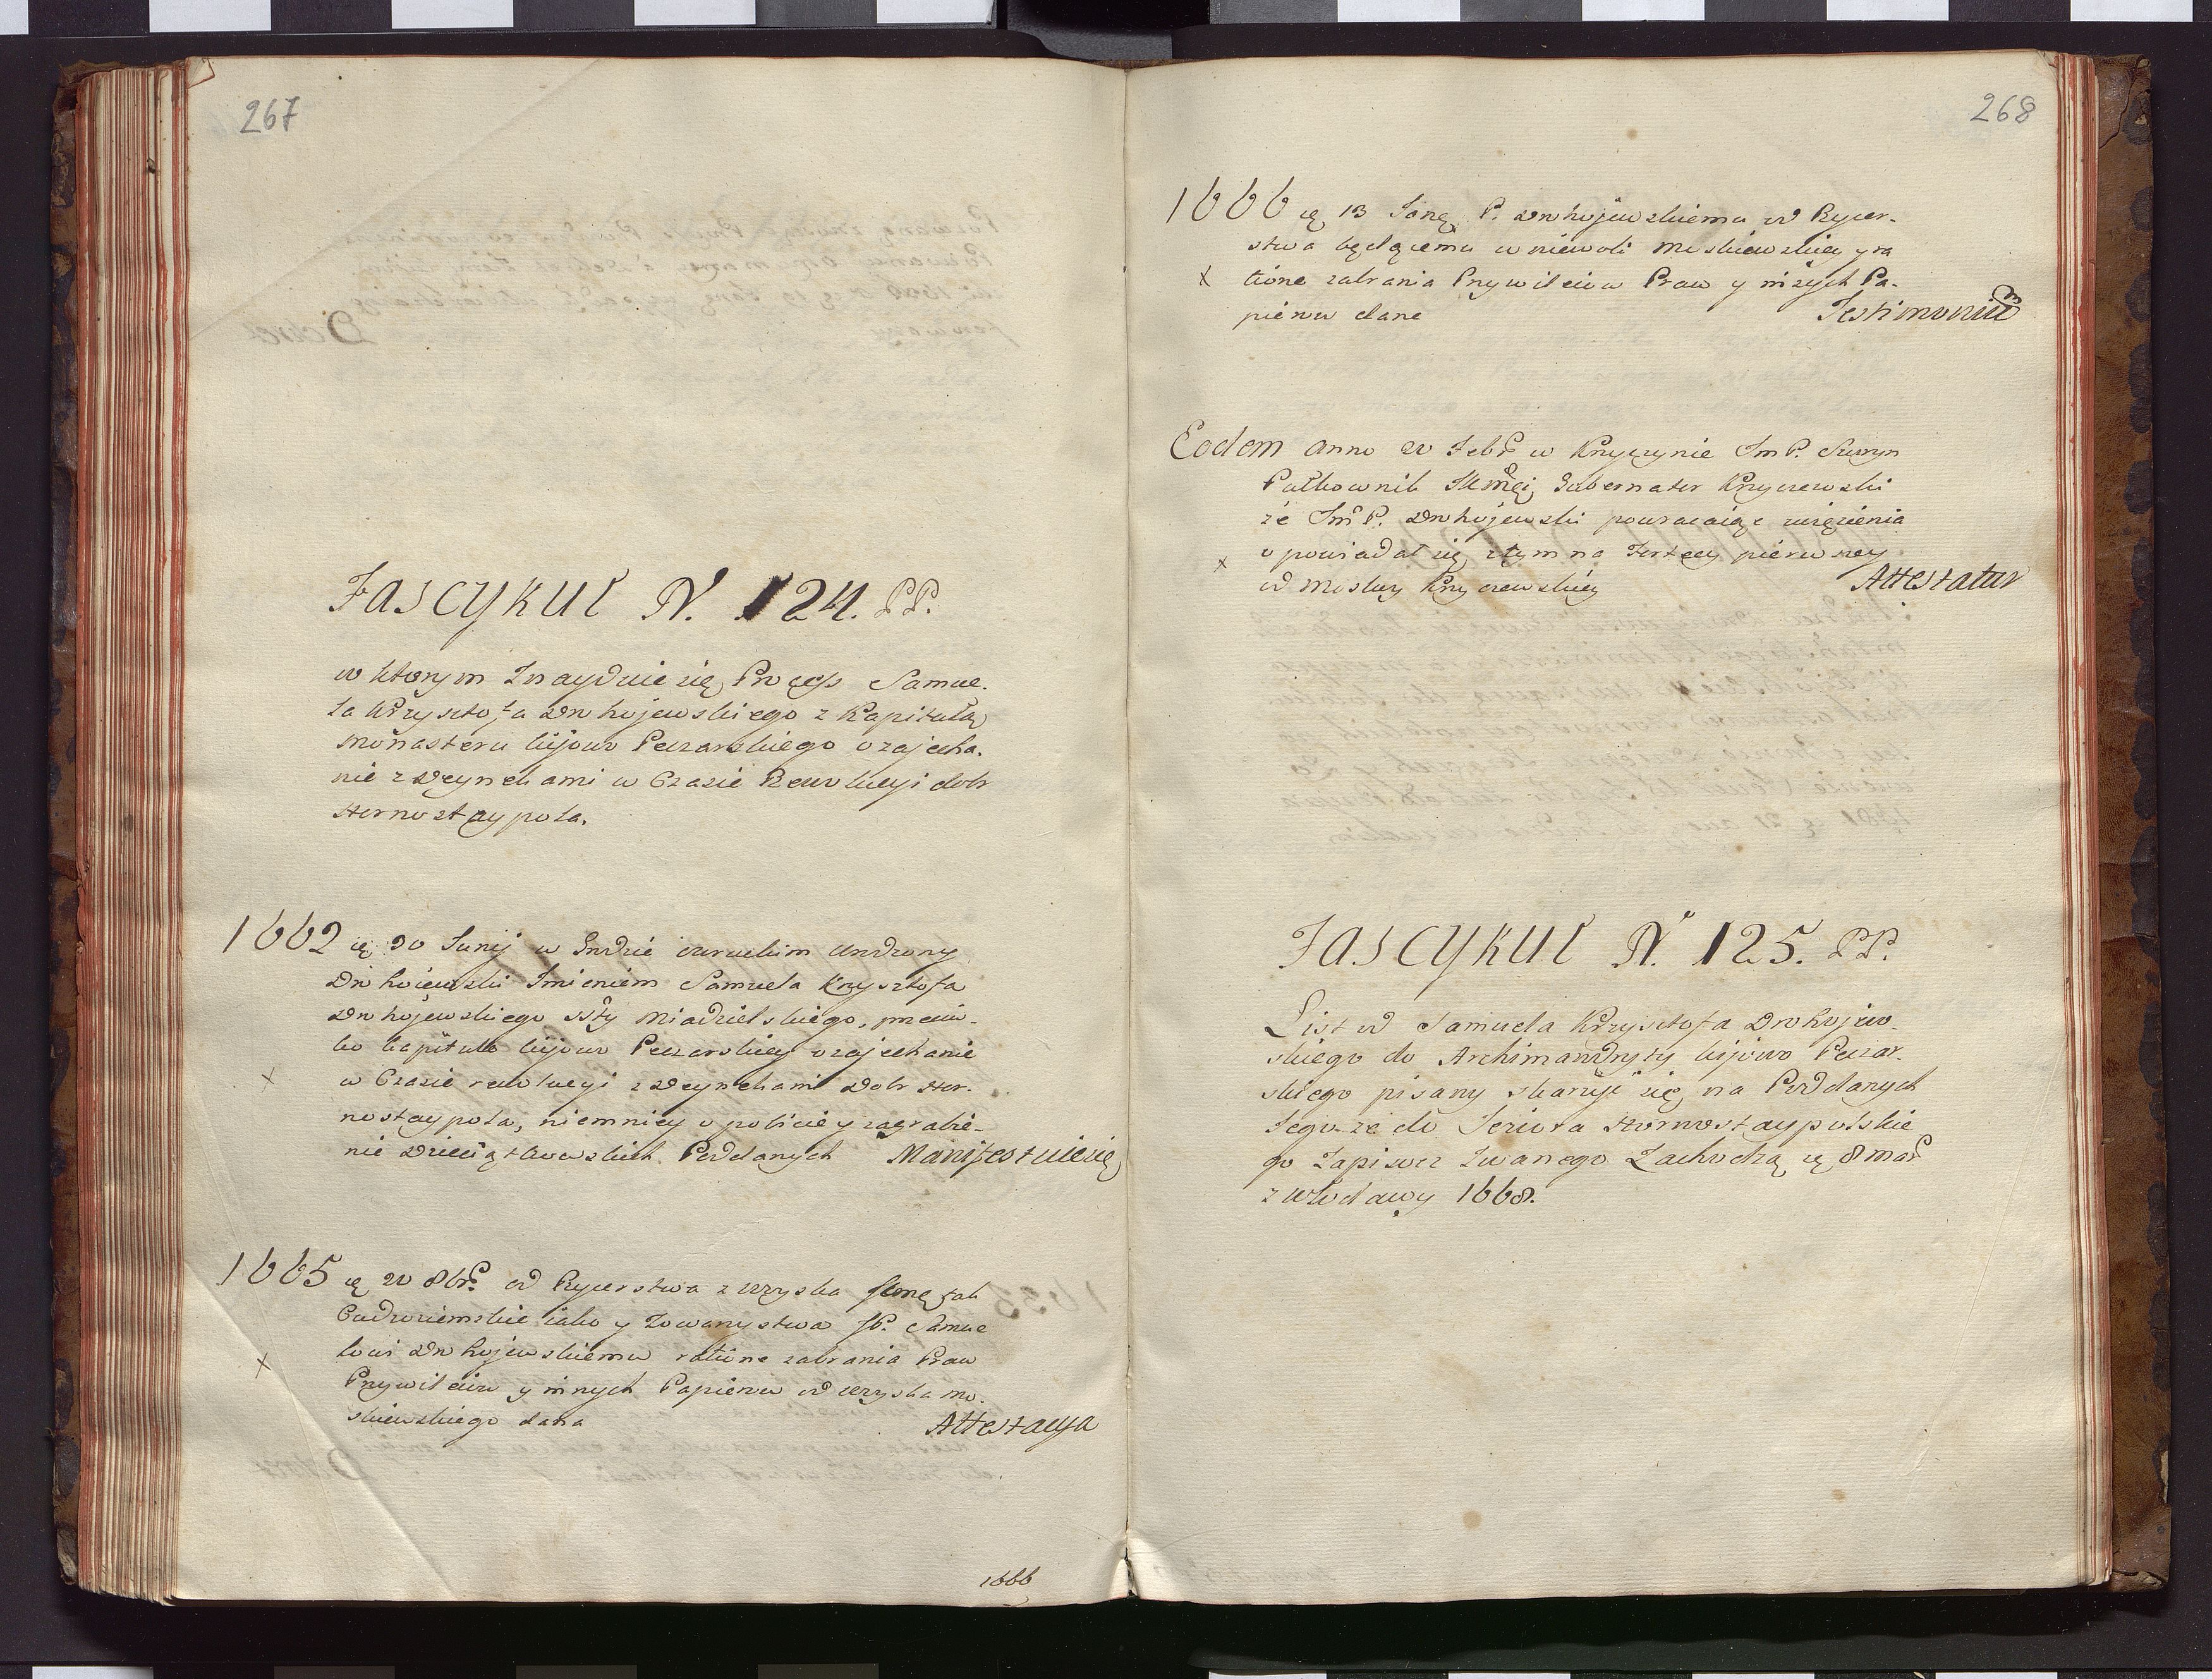 267
Fascykuł N. 124. PP.
w ktorym Znayduie się Process Samue-
la Krzysztofa Drohojewskiego z Kapitułą
Monasteru kijowo Peczarskiego o zajecha-
nie z Weynchami w Czasie Rewolucyi dobr
Hornostaypola.
1662 ię 30 Junij w Grodzie Andrzey
Drohoiewski Imieniem Samuela Krzysztofa
Drohojewskiego SSty Miadzielskiego, przeciw-
ko kapitule kijowo Peczarskiey o zajechanie
x w Czasie rewolucyi z Weynchami Dobr Hor-
nostaypola, niemniey o pobicie y zagrabie-
nie Poddanych Manifestuie się
1665 ię 20 8br. od Rycerstwa z woyska tak
Cudzoziemskie iako y Towarzystwa JP. Samue
lowi Drohojewskiemu ratione zabrania Praw
x Przywileiow y innych Papierow od woyska Mo-
skiewskiego dana Attestacya
1666
268
1666 ię 13 P. Drohojewskiemu od Rycer-
stwa będącemu w niewoli Moskiewskiey y ra
x tione zabrania Przywileiow Praw y inszych Pa-
pierow dane Testimonium
Eodem anno 20 Febr. w Krzyczynie Im P.
Pułkownik Gubernator Krzyczewski
że Im P. Drohojewski powracaiąc z więzienia
x opowiadał się z tym na Fortecy pierwszey
od Moskwy Krzyczewskiey Attestatur
Fascykuł N. 125. PP.
List od Samuela Krzysztofa Drohojew-
skiego do Archimandryty kijowo Peczar-
skiego pisany skarżąc się na Poddanych
tegoż że do Jeziora Hornostaypolskie
go Zapisocz Zwanego Zachodzą ię 8 mar.
z Włodawy 1668.